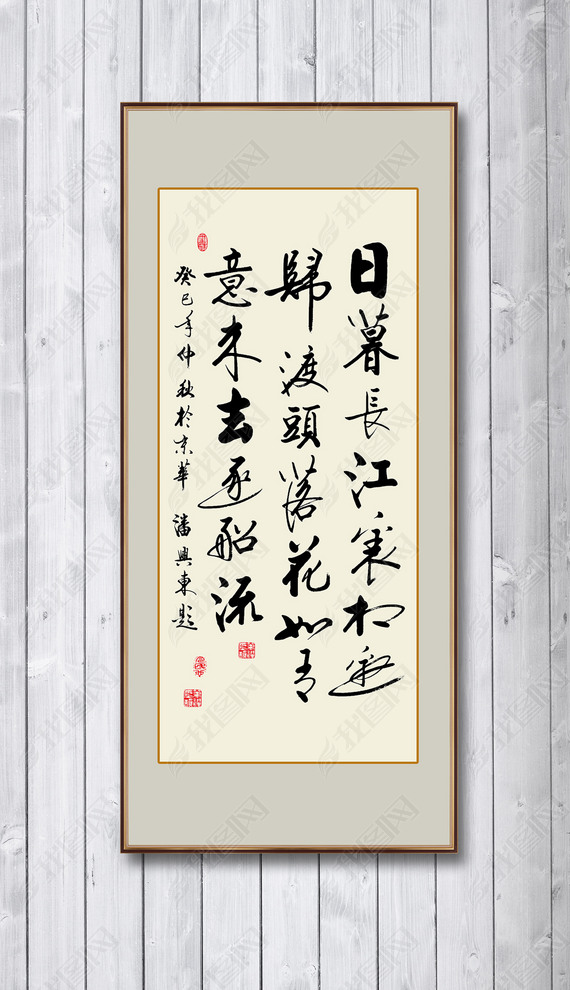 日暮長江裏相邀
歸渡頭落花如有
意来去逐船流
癸巳年仲秋於京華 潘興東題
我图网